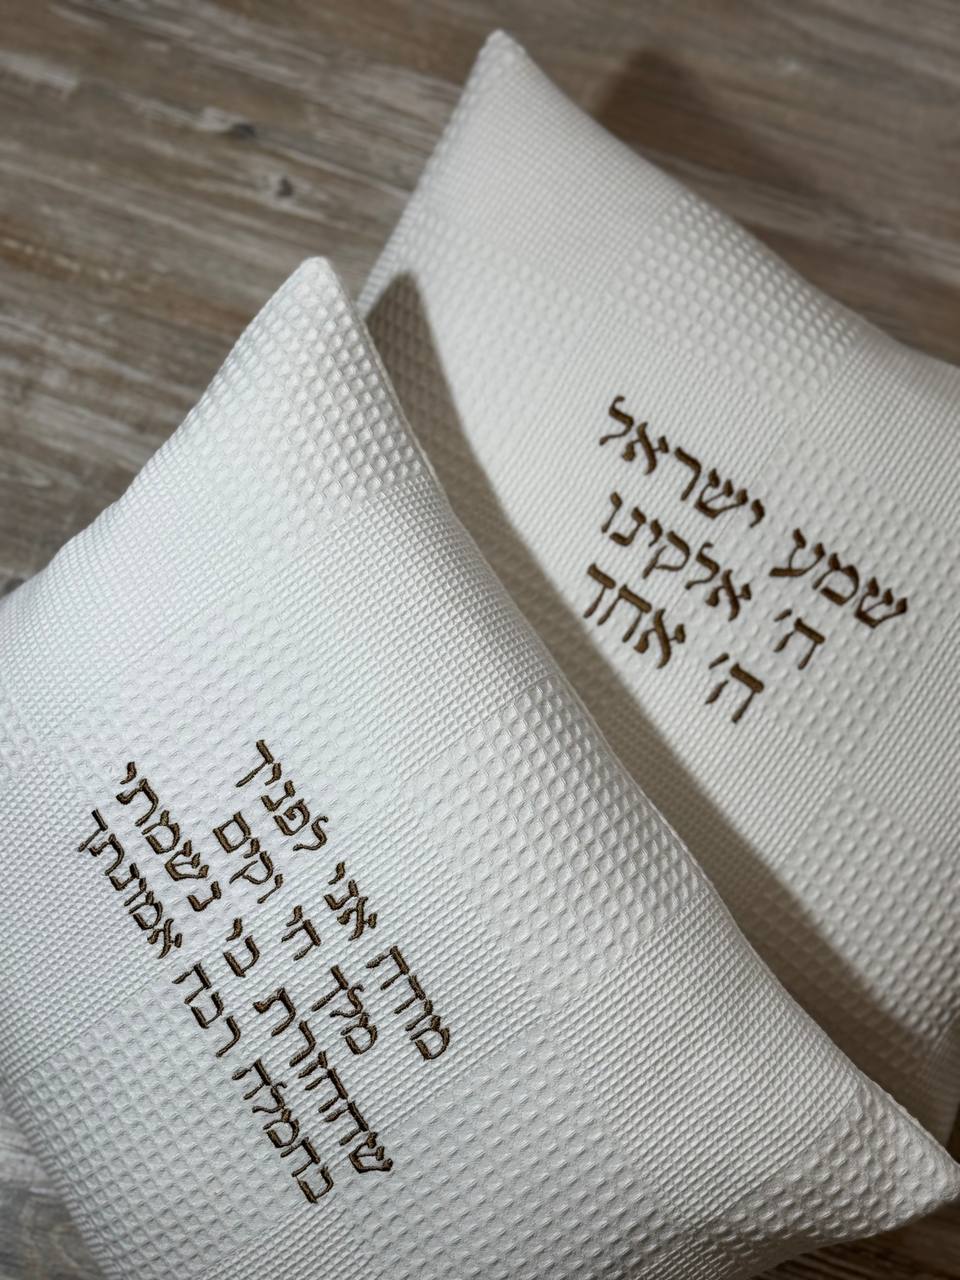 שמע ישראל
ה' אלקינו
ה' אחד
מודה אני לפניך
מלך חי וקים
שהחזרת בי נשמתי
בחמלה רבה אמונתך